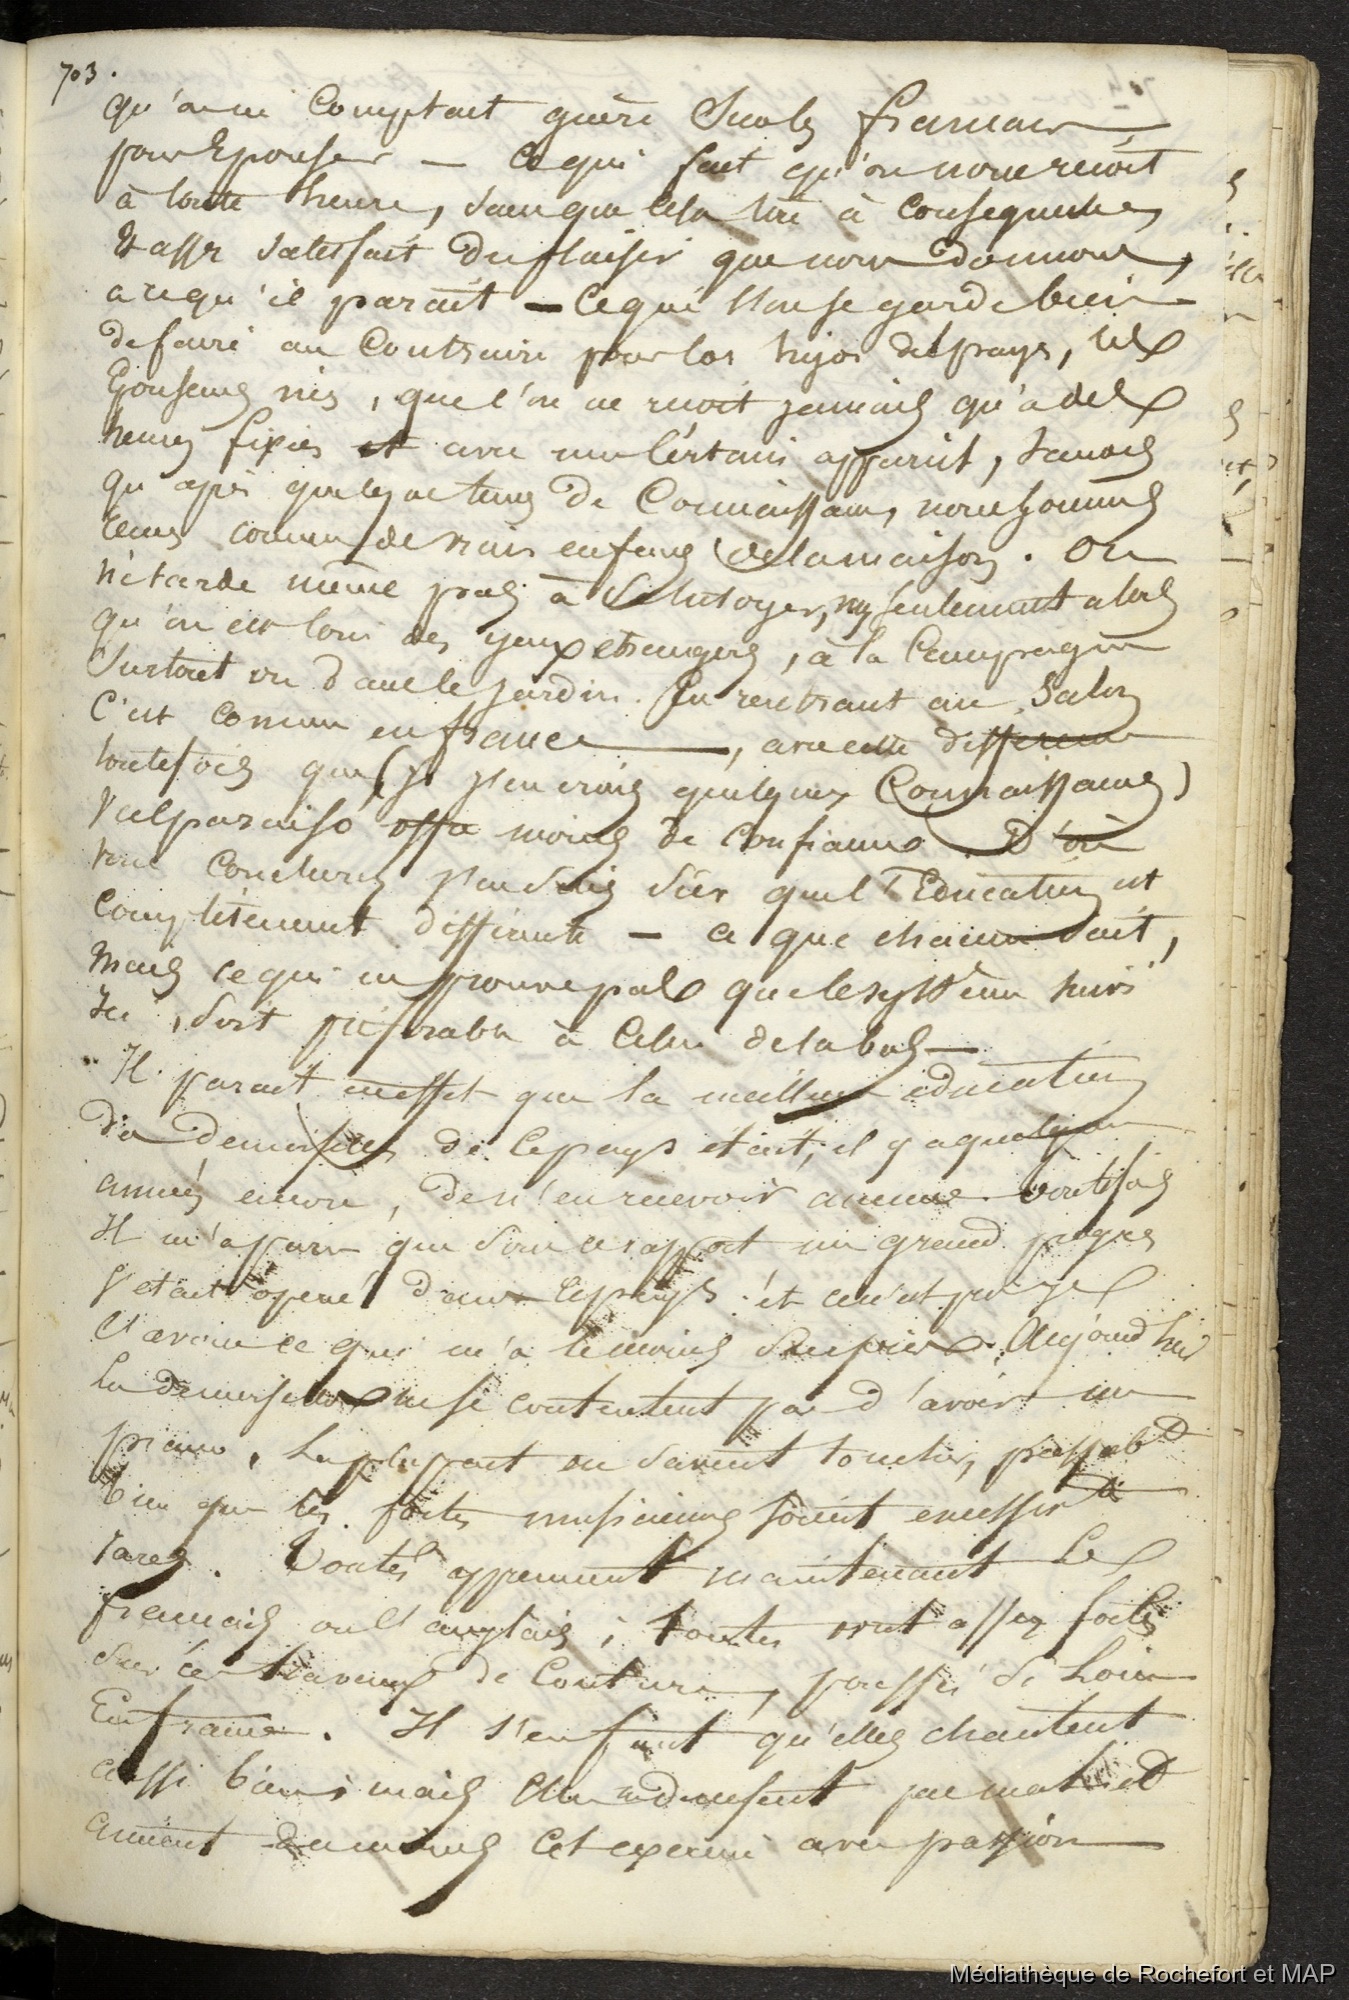 703.
qu'on ne comptait guère sur les français
pour Epouser — ce qui fait qu'on nous reçoit
à toute heure, sans que cela tire à conséquence,
Et assez satisfait du plaisir que nous donnons,
à ce qu'il paraît — Ce qui l'on se garde bien
de faire au contraire pour los hijos del pays, les
que l'on ne reçoit jamais qu'à des
heures fixées et avec un certain apparat, tandis
qu'après quelque tems de connaissance, nous sommes
tenus comme de vrais enfans de la maison. On
ne tarde même pas à se tutoyer, seulement alors
qu'on est loin des yeux étrangers, à la campagne
surtout ou dans le jardin. En rentrant au salon
C'est comme en france, avec cette différence
toutefois que (si j'en crois quelques connaissances)
Valparaiso offre moins de confiance. D'où
vous conclurez j'en suis sûr que l'Education est
complètement différente — ce que chacun sait,
Mais ce qui ne prouve pas que le système suivi
Ici, soit préférable à celui de là bas —
Il paraît en effet que la meilleure éducation
des demoiselles de ce pays était, il y a quelques
années encore, de n'en recevoir aucune. toutefois
Il m'a paru que sous ce rapport un grand progrès
s'était opéré dans le pays et ce n'est pas je
l'avoue ce qui m'a le moins surpris. Aujourd'hui
les demoiselles ne se contentent pas d'avoir un
piano, la plupart en savent toucher, passabt
bien que les fortes musiciennes soient excessivt
rares. Toutes apprennent maintenant le
français ou l'anglais; toutes sont assez fortes
sur les travaux de couture, poussés si loin
En france. Il s'en faut qu'elles chantent
aussi bien; mais elles ne dansent pas mal et
aiment du moins cet exercice avec passion